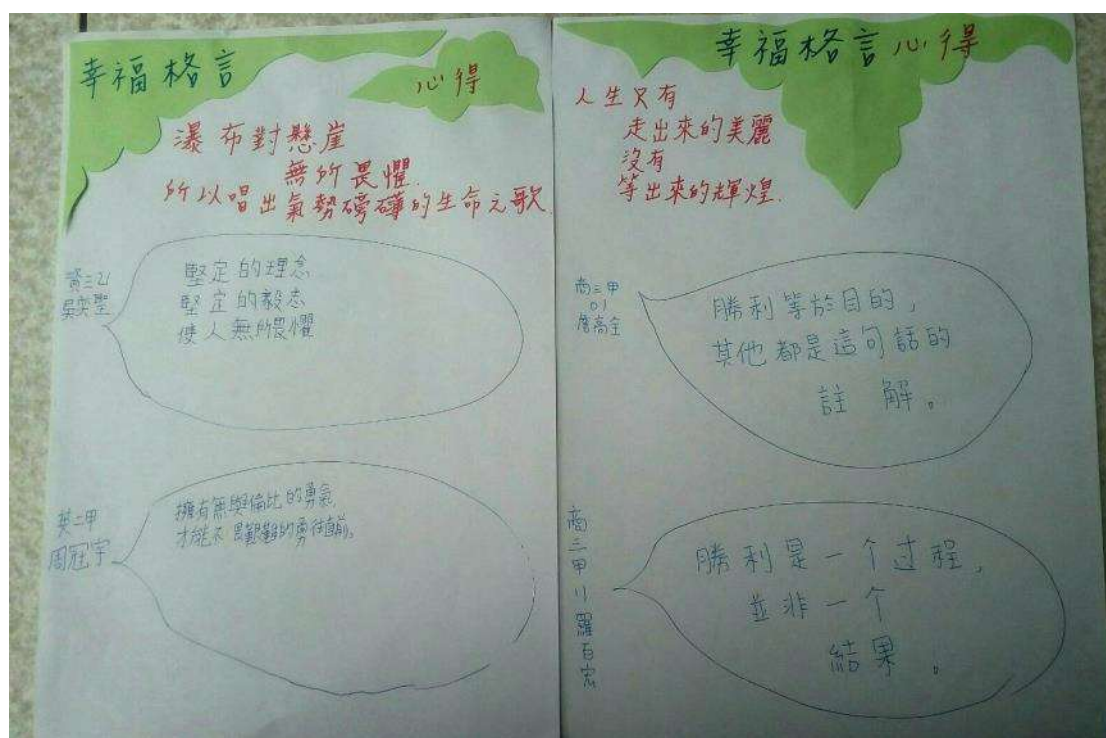 幸福格言
心得
瀑布對懸崖
無所畏懼.
所以唱出氣勢磅礡的生命之歌.
資三21
吳奕聖
堅定的理念
堅定的毅志
使人無所畏懼
英二甲
周冠宇
擁有無與倫比的勇氣,
才能不畏艱難的勇往直前。
幸福格言心得
人生只有
走出來的美麗
沒有
等出來的輝煌.
商三甲
01
詹高全
勝利等於目的,
其他都是這句話的
註解。
商三甲11羅百宏
勝利是一个过程,
並非一个
結果。